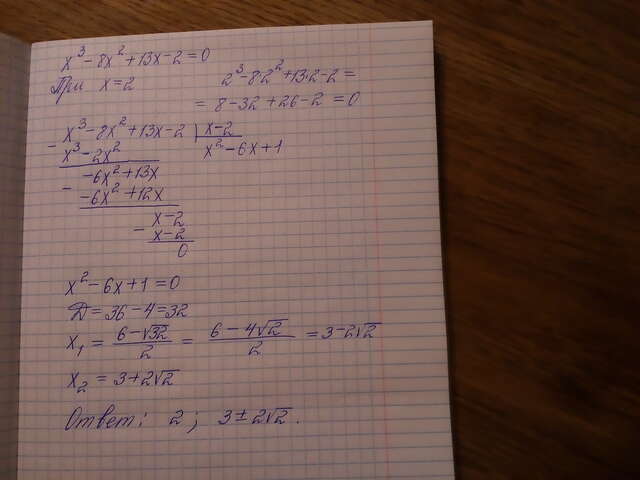 x³ - 8x² + 13x - 2 = 0
При x = 2   2³ - 8·2² + 13·2 - 2 =
= 8 - 32 + 26 - 2 = 0
- x³ - 8x² + 13x - 2 | x - 2
x³ - 2x²   x² - 6x + 1
- -6x² + 13x
-6x² + 12x
- x - 2
x - 2
0
x² - 6x + 1 = 0
Д = 36 - 4 = 32
x₁ = (6 - √32)/2 = (6 - 4√2)/2 = 3 - 2√2
x₂ = 3 + 2√2
Ответ: 2; 3 ± 2√2.